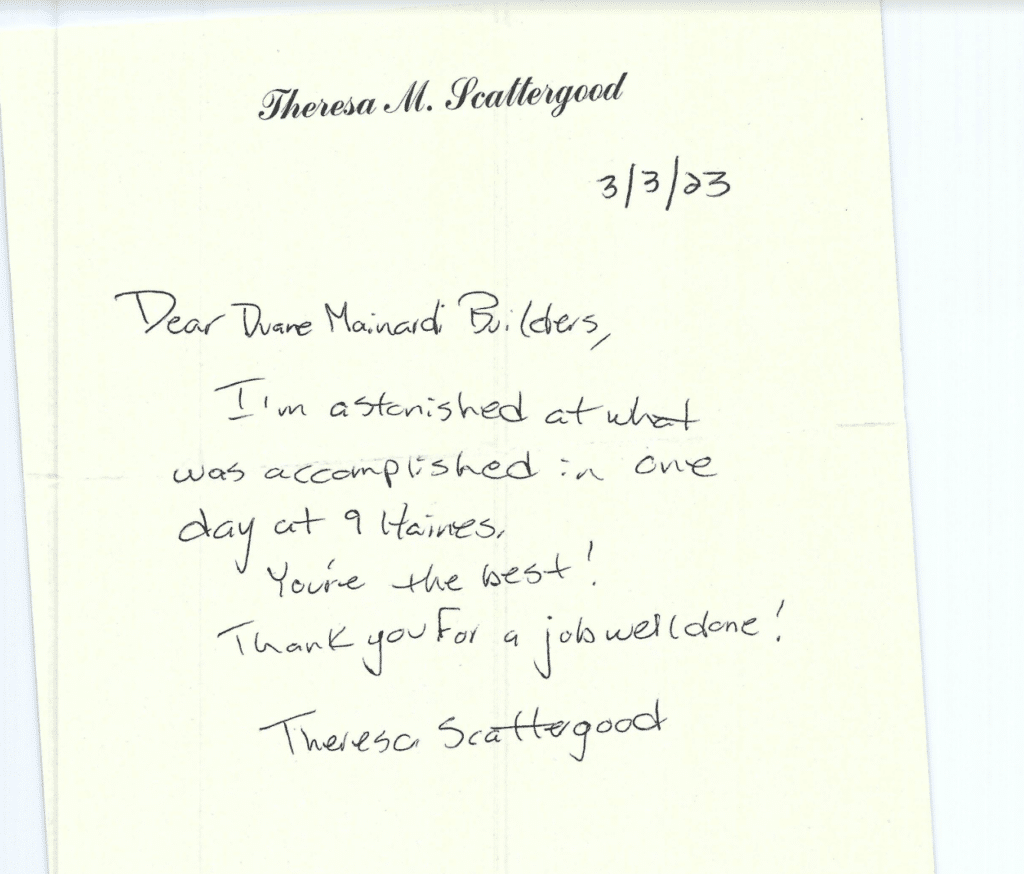 Theresa M. Scattergood
3/3/23
Dear Duane Mainardi Builders,
I'm astonished at what
was accomplished in one
day at 9 Haines.
You're the best!
Thank you For a job well done!
Theresa Scattergood